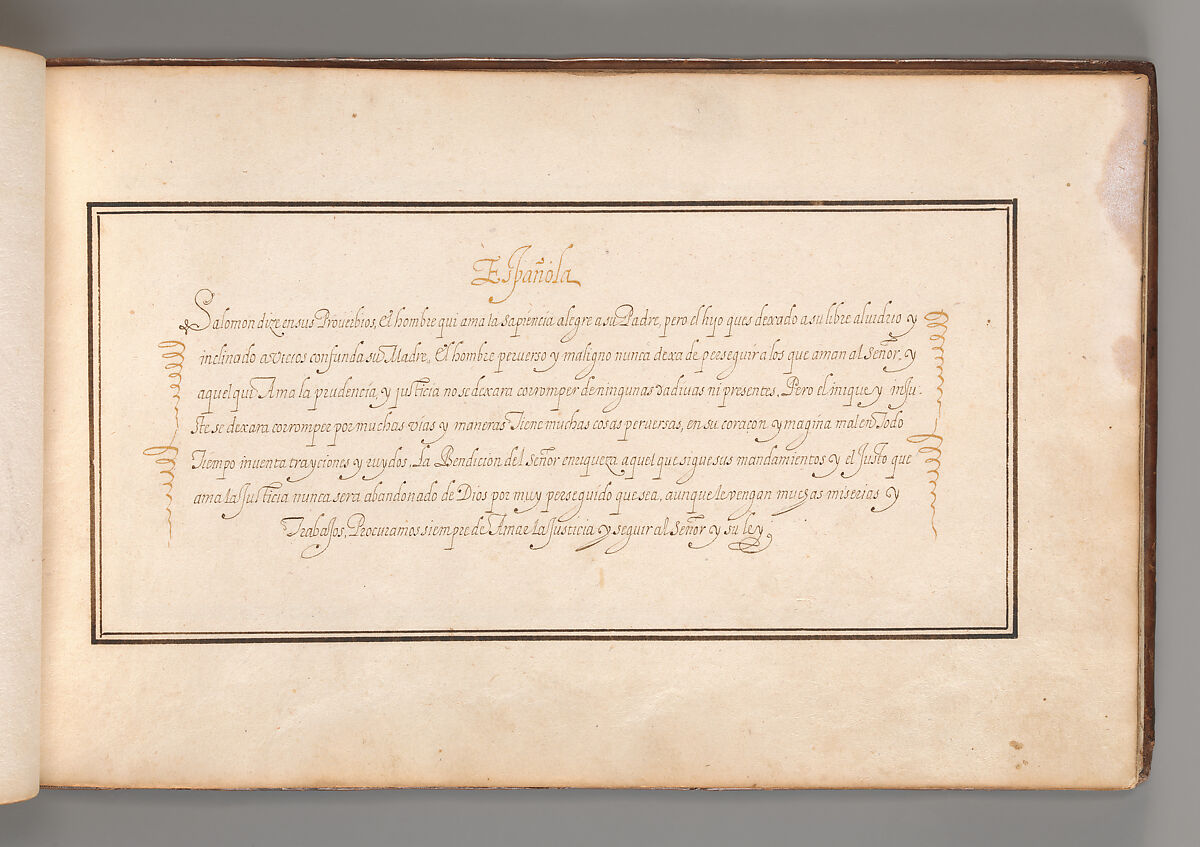 Española
Salomon dize en sus Proverbios, el hombre qui ama la sapiencia alegre a su Padre, pero el hijo ques dexado a su libre aluidrio y
inclinado a vicios confunda su Madre, El hombre perverso y maligno nunca dexa de perseguir a los que aman al señor, y
aquel qui Ama la prudencia, y justicia no se dexara corromper de ningunas dadiuas ni presentes, Pero el inique y inju-
ste se dexara corromper por muchas vias y maneras Tiene muchas cosas perversas, en su coracon y magina mal en Todo
Tiempo inventa trayciones y ruydos, La Bendicion del señor enriqueza aquel que sigue sus mandamientos y el Justo que
ama la Justicia nunca sera abandonado de Dios por muy perseguido que sea, aunque le vengan muchas miserias y
Trabajos, Procuramos siempre de Amar la Justicia y seguir al señor y su ley